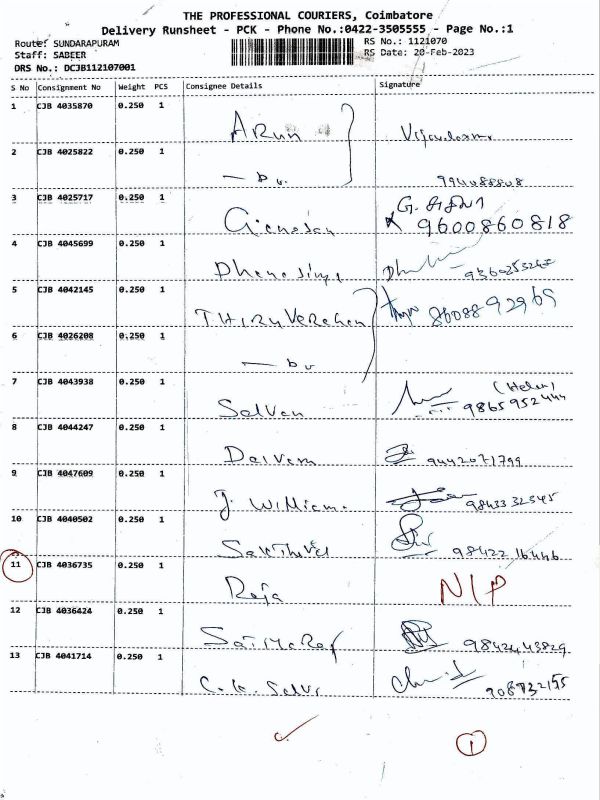 THE PROFESSIONAL COURIERS, Coimbatore
Delivery Runsheet - PCK - Phone No.:0422-3505555 - Page No.:1
Route: SUNDARAPURAM
RS No.: 1121070
Staff: SABEER
RS Date: 20-Feb-2023
DRS No.: DCJB112107001
S No Consignment No Weight PCS Consignee Details Signature
1 CJB 4035870 0.250 1 Arun
2 CJB 4025822 0.250 1
3 CJB 4025717 0.250 1 9600860818
4 CJB 4045699 0.250 1
5 CJB 4042145 0.250 1 8608892969
6 CJB 4026208 0.250 1
7 CJB 4043938 0.250 1 Selven (Helen) 9865952444
8 CJB 4044247 0.250 1 9442071799
9 CJB 4047609 0.250 1 J. William 9843332545
10 CJB 4040502 0.250 1 9842216446
11 CJB 4036735 0.250 1 Raja NIP
12 CJB 4036424 0.250 1 9842443829
13 CJB 4041714 0.250 1 C.K. Selvi
1